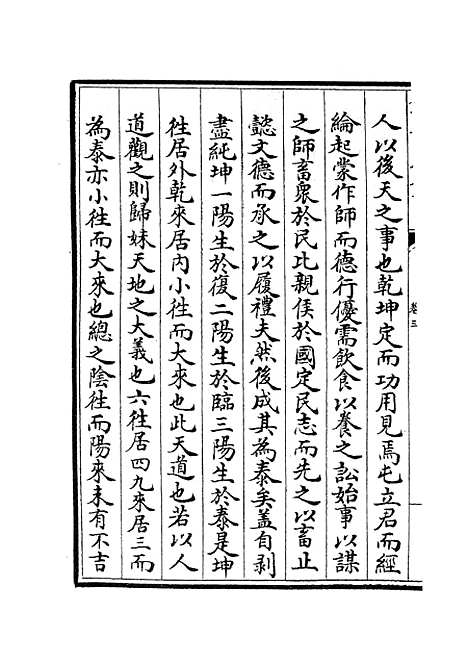 卷三
人以後天之事也乾坤定而功用見焉屯立君而經
綸起蒙作師而德行優需飲食以養之訟始事以謀
之師畜衆於民比親侯於國定民志而先之以畜止
懿文德而承之以履禮夫然後成其為泰矣蓋自剥
盡純坤一陽生於復二陽生於臨三陽生於泰是坤
徃居外乾來居内小徃而大來也此天道也若以人
道觀之則歸妹天地之大義也六徃居四九來居三而
為泰亦小徃而大來也總之陰徃而陽來未有不吉